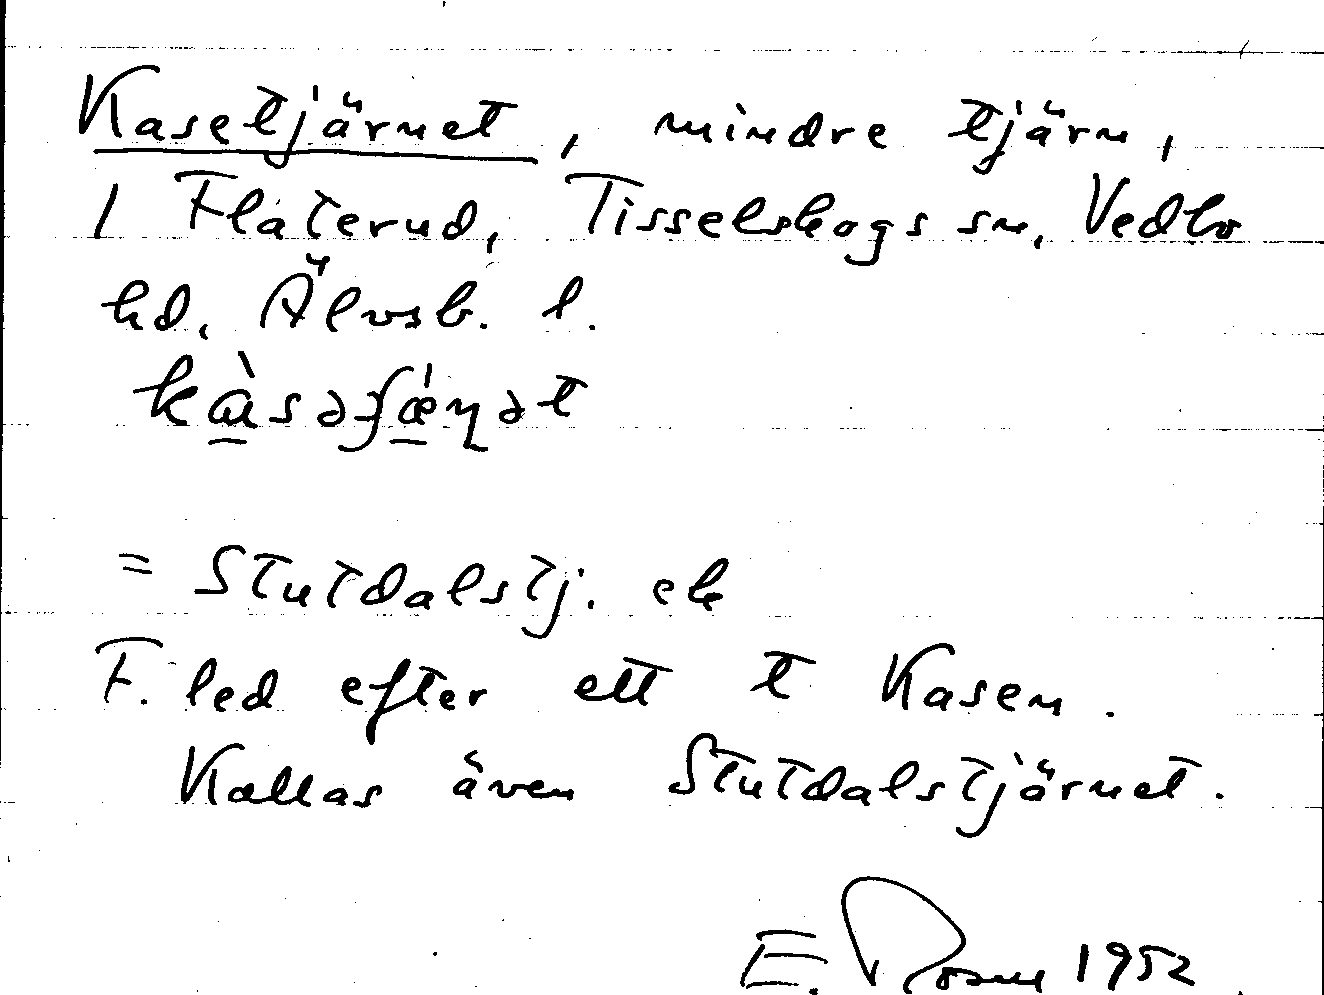 Kasetjärnet, mindre tjärn,
I Flåterud, Tisselskogs sn, Vedbo
hd, Älvsb. l.
= Stutdalstj. ek
F. led efter ett t Kasen.
Kallas även Stutdalstjärnet.
E. 1952